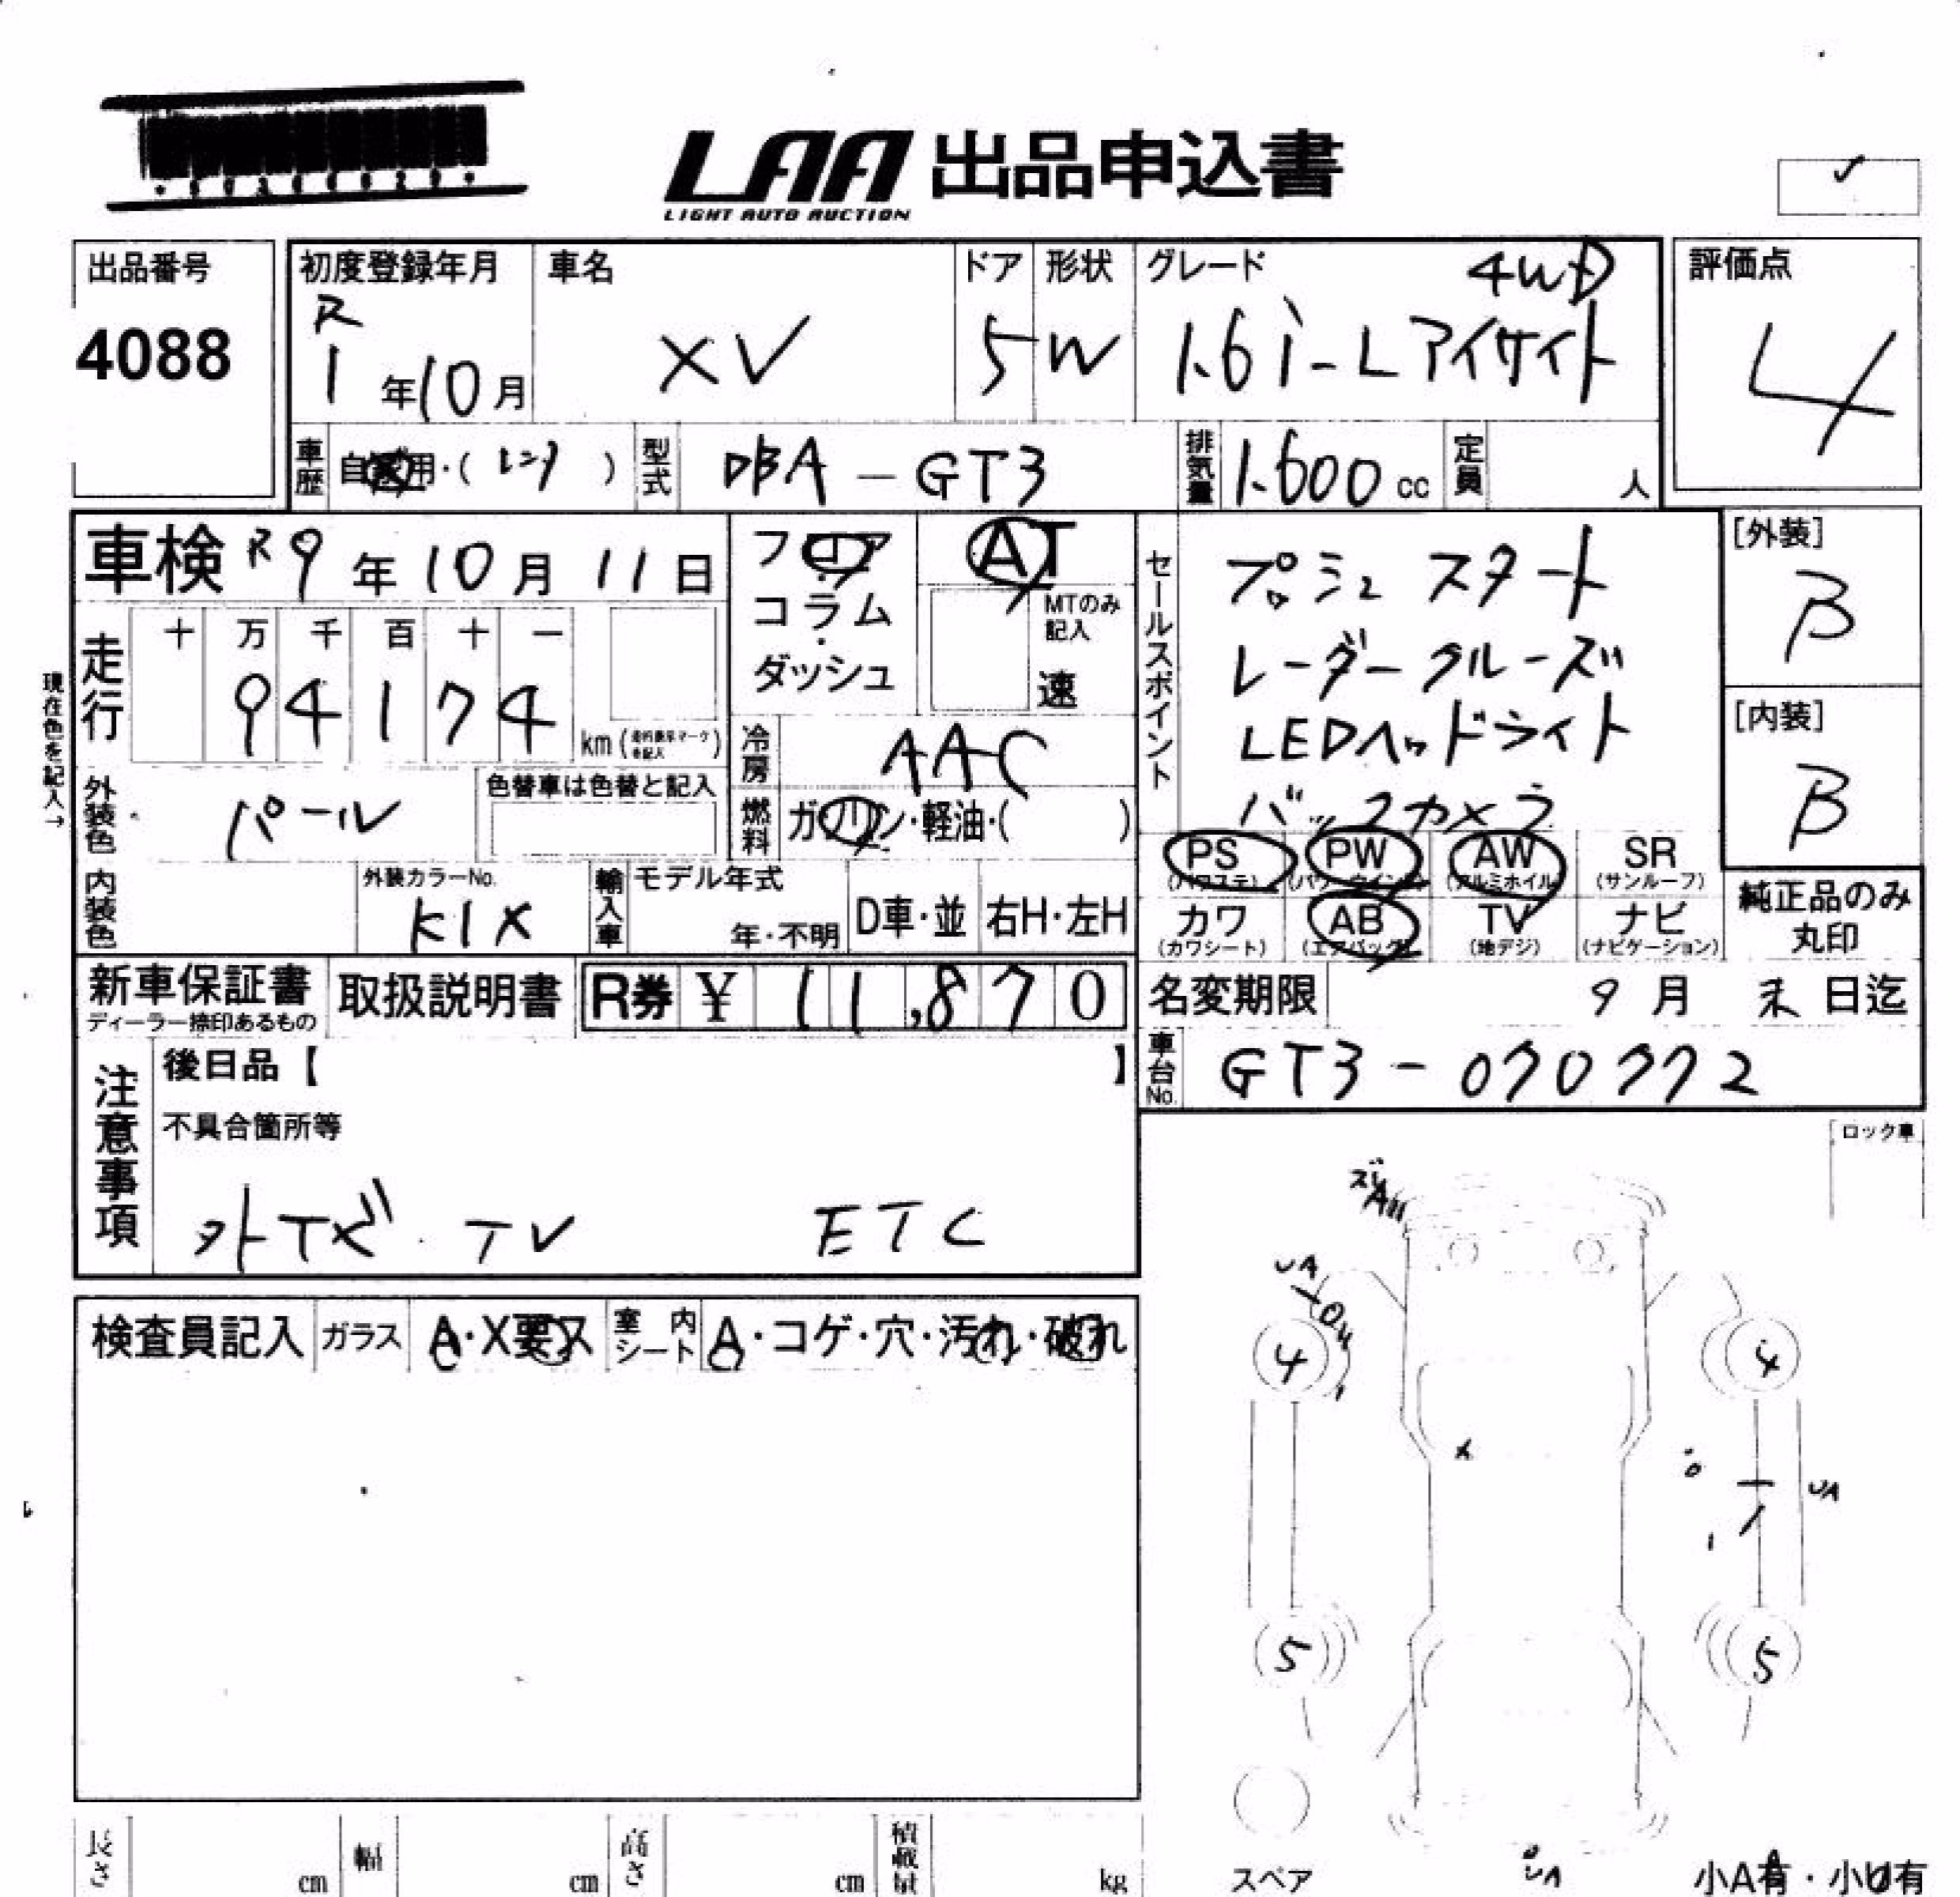 LAA 出品申込書
LIGHT AUTO AUCTION
出品番号
4088
初度登録年月
R
1 年 10 月
車名
XV
ドア
5
形状
W
グレード
4WD
1.6i-L アイサイト
評価点
4
車歴
自家用・( レンタ )
型式
DBA-GT3
排気量
1.600 cc
定員
人
車検 R9 年 10 月 11 日
フロア
・
コラム
・
ダッシュ
AT
MTのみ
記入
速
セールスポイント
プッシュ スタート
レーダークルーズ
LEDヘッドライト
バックカメラ
[外装]
B
[内装]
B
現在色を記入→
走行
十 万 千 百 十 一
9 4 1 7 4
km
冷房
AAC
外装色
パール
色替車は色替と記入
燃料
ガソリン・軽油・( )
PS PW AW SR
(パワステ) (パワーウインド) (アルミホイル) (サンルーフ)
カワ AB TV ナビ
(カワシート) (エアバッグ) (地デジ) (ナビゲーション)
純正品のみ
丸印
内装色
外装カラーNo.
K1X
輸入車
モデル年式
年・不明
D車・並
右H・左H
新車保証書
ディーラー捺印あるもの
取扱説明書
R券 ¥ 11,870
名変期限
9 月 末 日迄
車台No.
GT3-070772
注意事項
後日品【 】
不具合箇所等
外ナビ・TV ETC
ロック車
検査員記入
ガラス
A・X要ス
室内
シート
A・コゲ・穴・汚れ・破れ
ズレ
A
UA
4
4
X
UA
5
5
UA
スペア
小A有・小U有
長さ
cm
幅
cm
高さ
cm
積載量
kg